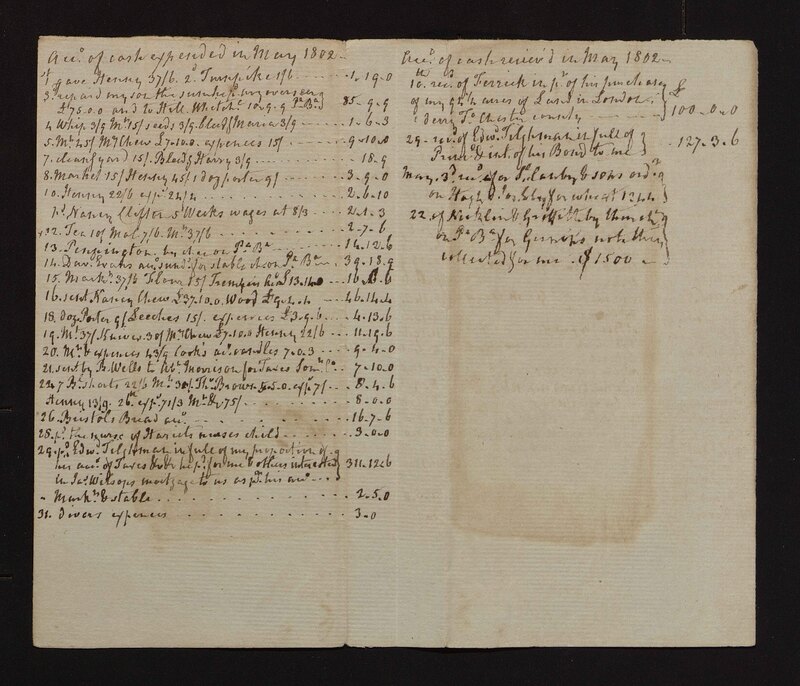 Acc.t of cash expended in May 1802
1st gave Henney 37/6. 2d Turnpike 1/6 - - - 1. 19. 0
3d repaid my son the sum he p.d my overseer
£75.0.0 and to Hill 10.9.9 P.a B.a } 85. 9. 9
4 Whip 3/9 M.t 15/ seeds 3/9 bleed.g Maria 3/9 - - - 1. 6. 3
5. M.t 45/ M.rs Chew £7.10.0 expences 15/ - - 9. 10. 0
7. clean.g yard 15/. Bleed.g Harry 3/9 - - - 18. 9
8. Market 15/ Henney 45/ dog porter 9/ - - - 3. 9. 0
10. Henney 22/6 exp.s 24/4 - - - 2. 6. 10
Nancy Clifton 5 Weeks wages at 8/3 - - 2. 1. 3
12. Tea 10/ 7/6. M.t 37/6 - - - 2. 7. 6
13. Pennington by check on P.a B.a - - - 14. 12. 6
14. Dav. Evans acc.t for stable check on P.a B.a 39. 18. 9
15. Mark.t 37/6 Flour 15/ 13.14.0 - 16. 6
16. sent Nancy Chew £37.10.0. Wood £9.4.4 - - 46. 14. 4
18. dog Porter 9/ Leeches 15/. expences £3.9.6 - - 4. 13. 6
19. M.t 37/ Knives 30/ M.rs Chew £7.10.0 Henney 22/6 - - 11. 19. 6
20. M.t & expences 43/9 Cooks acc.t candles 7.0.3 - - 9. 4. 0
21. sent by B. Wells to Morrison for Taxes Som.t C.o - 7. 10. 0
24. 7 B. shorts 22/6 M.t 30/ Tho.s Brown £5.0. exp.s 7/ - - 8. 4. 6
Henney 13/9. 26th exp.s 71/3 M.t &c 75/ - - - 8. 0. 0
26. Bristols Bread acc.t - - - 16. 7. 6
28. p.d the nurse of Hariets child - - - 3. 0. 0
29. p.d Edw.d Tilghman in full of my proportion of
his acc.t of Taxes he p.d for me & others interested
in Ja.s Wilsons mortgage to us as p.r his acc.t - - } 311. 12. 6
" Mark.t & stable - - - 2. 5. 0
31. divers expences - - - 3. 0
Acc.t of cash receiv'd in May 1802
10th rec.d of Terrick in p.t of his purchase
of my acres of Land in London-
derry T.p Chester county - - } £ 100. 0. 0
29. rec.d of Edw.d Tilghman in full of
Princ.l & int. of his Bond to me } 127. 3. 6
May. 3d for T. Canby & sons ord.r
on Hugh for wheat
22. of Nicklin & Griffith by their check
on P.a B.a for note they
collected for me. $ 1500